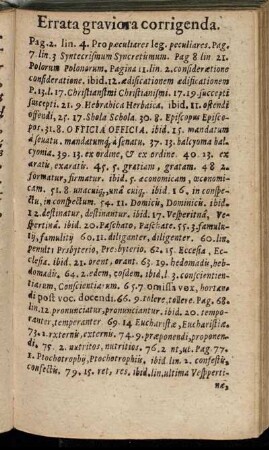 Errata graviora corrigenda.
Pag.2. lin. 4. Pro pæculiares leg. peculiares. Pag.
7 lin. 3 Syntecrismum Syncretismum. Pag 8 lin 21.
Polorum Polonorum. Pagina 11. lin. 2. considerationo
consideratione. ibid. 12. ædisicationem ædificationem
P. 13. l. 17. Christianstmi Christianismi. 17. 19. succepti
suscepti. 21. 9. Hebrabica Herbaica. ibid. 11. offendi
offendi, 25. 17. Shola Schola. 30. 8. Episcopus Episco-
pos. 31. 8. OFTICIA OFFICIA. ibid. 15. mandatum
a senatu. mandatumq; a senatu. 37. 13. halcyoma hal-
cyonia. 39. 13. ex ordine, & ex ordine. 40. 13. ex
aratis, exaratis. 45. 5. gratiam, gratam. 48 4.
formatur, firmatur. ibid. 5. æconomicam, œconomi-
cam. 51. 8. unacuiq, unâ cuiq. ibid. 16. in conspe-
ctu, in conspectum. 54. 11. Domicũ, Dominicũ, ibid.
12. destinatur, destinantur. ibid. 17. Vespertinâ, Ves-
pertinâ. ibid. 20. Paschato, Paschate. 55. 3. samulu-
ij, famulitij 60. 11. diligenter, diligenter. 60. lin.
penult: Presbyterio, Presbyterio. 62 15. Eccesia, Ec-
clesia. ibid. 21. orent, orant. 63. 19. hedomadis, heb-
domadis, 64. 2. edem, eosdem, ibid. l 3. conscientien-
tiarum, Conscientiarum. 65. 7. omissa vox, hortan-
di post voc. docendi. 66. 9. tolere, tollere. Pag. 68.
lin. 12 pronunciatur, pronunciantur. ibid. 20. tempo-
rantur, temperantur 69. 14 Eucharistiæ, Eucharistiæ.
73. 2. rxternis, externis. 74. 9. præponendi, proponen-
di, 75. 2. uutritos, nutritios. 76. 2 nt, ut. Pag. 77.
1. Ptochotrophj, Ptochotrophijs, ibid lin. 2. confestũ,
confectũ. 79. 15. ret, res. ibid. lin. ultima Vesperti-
næ,